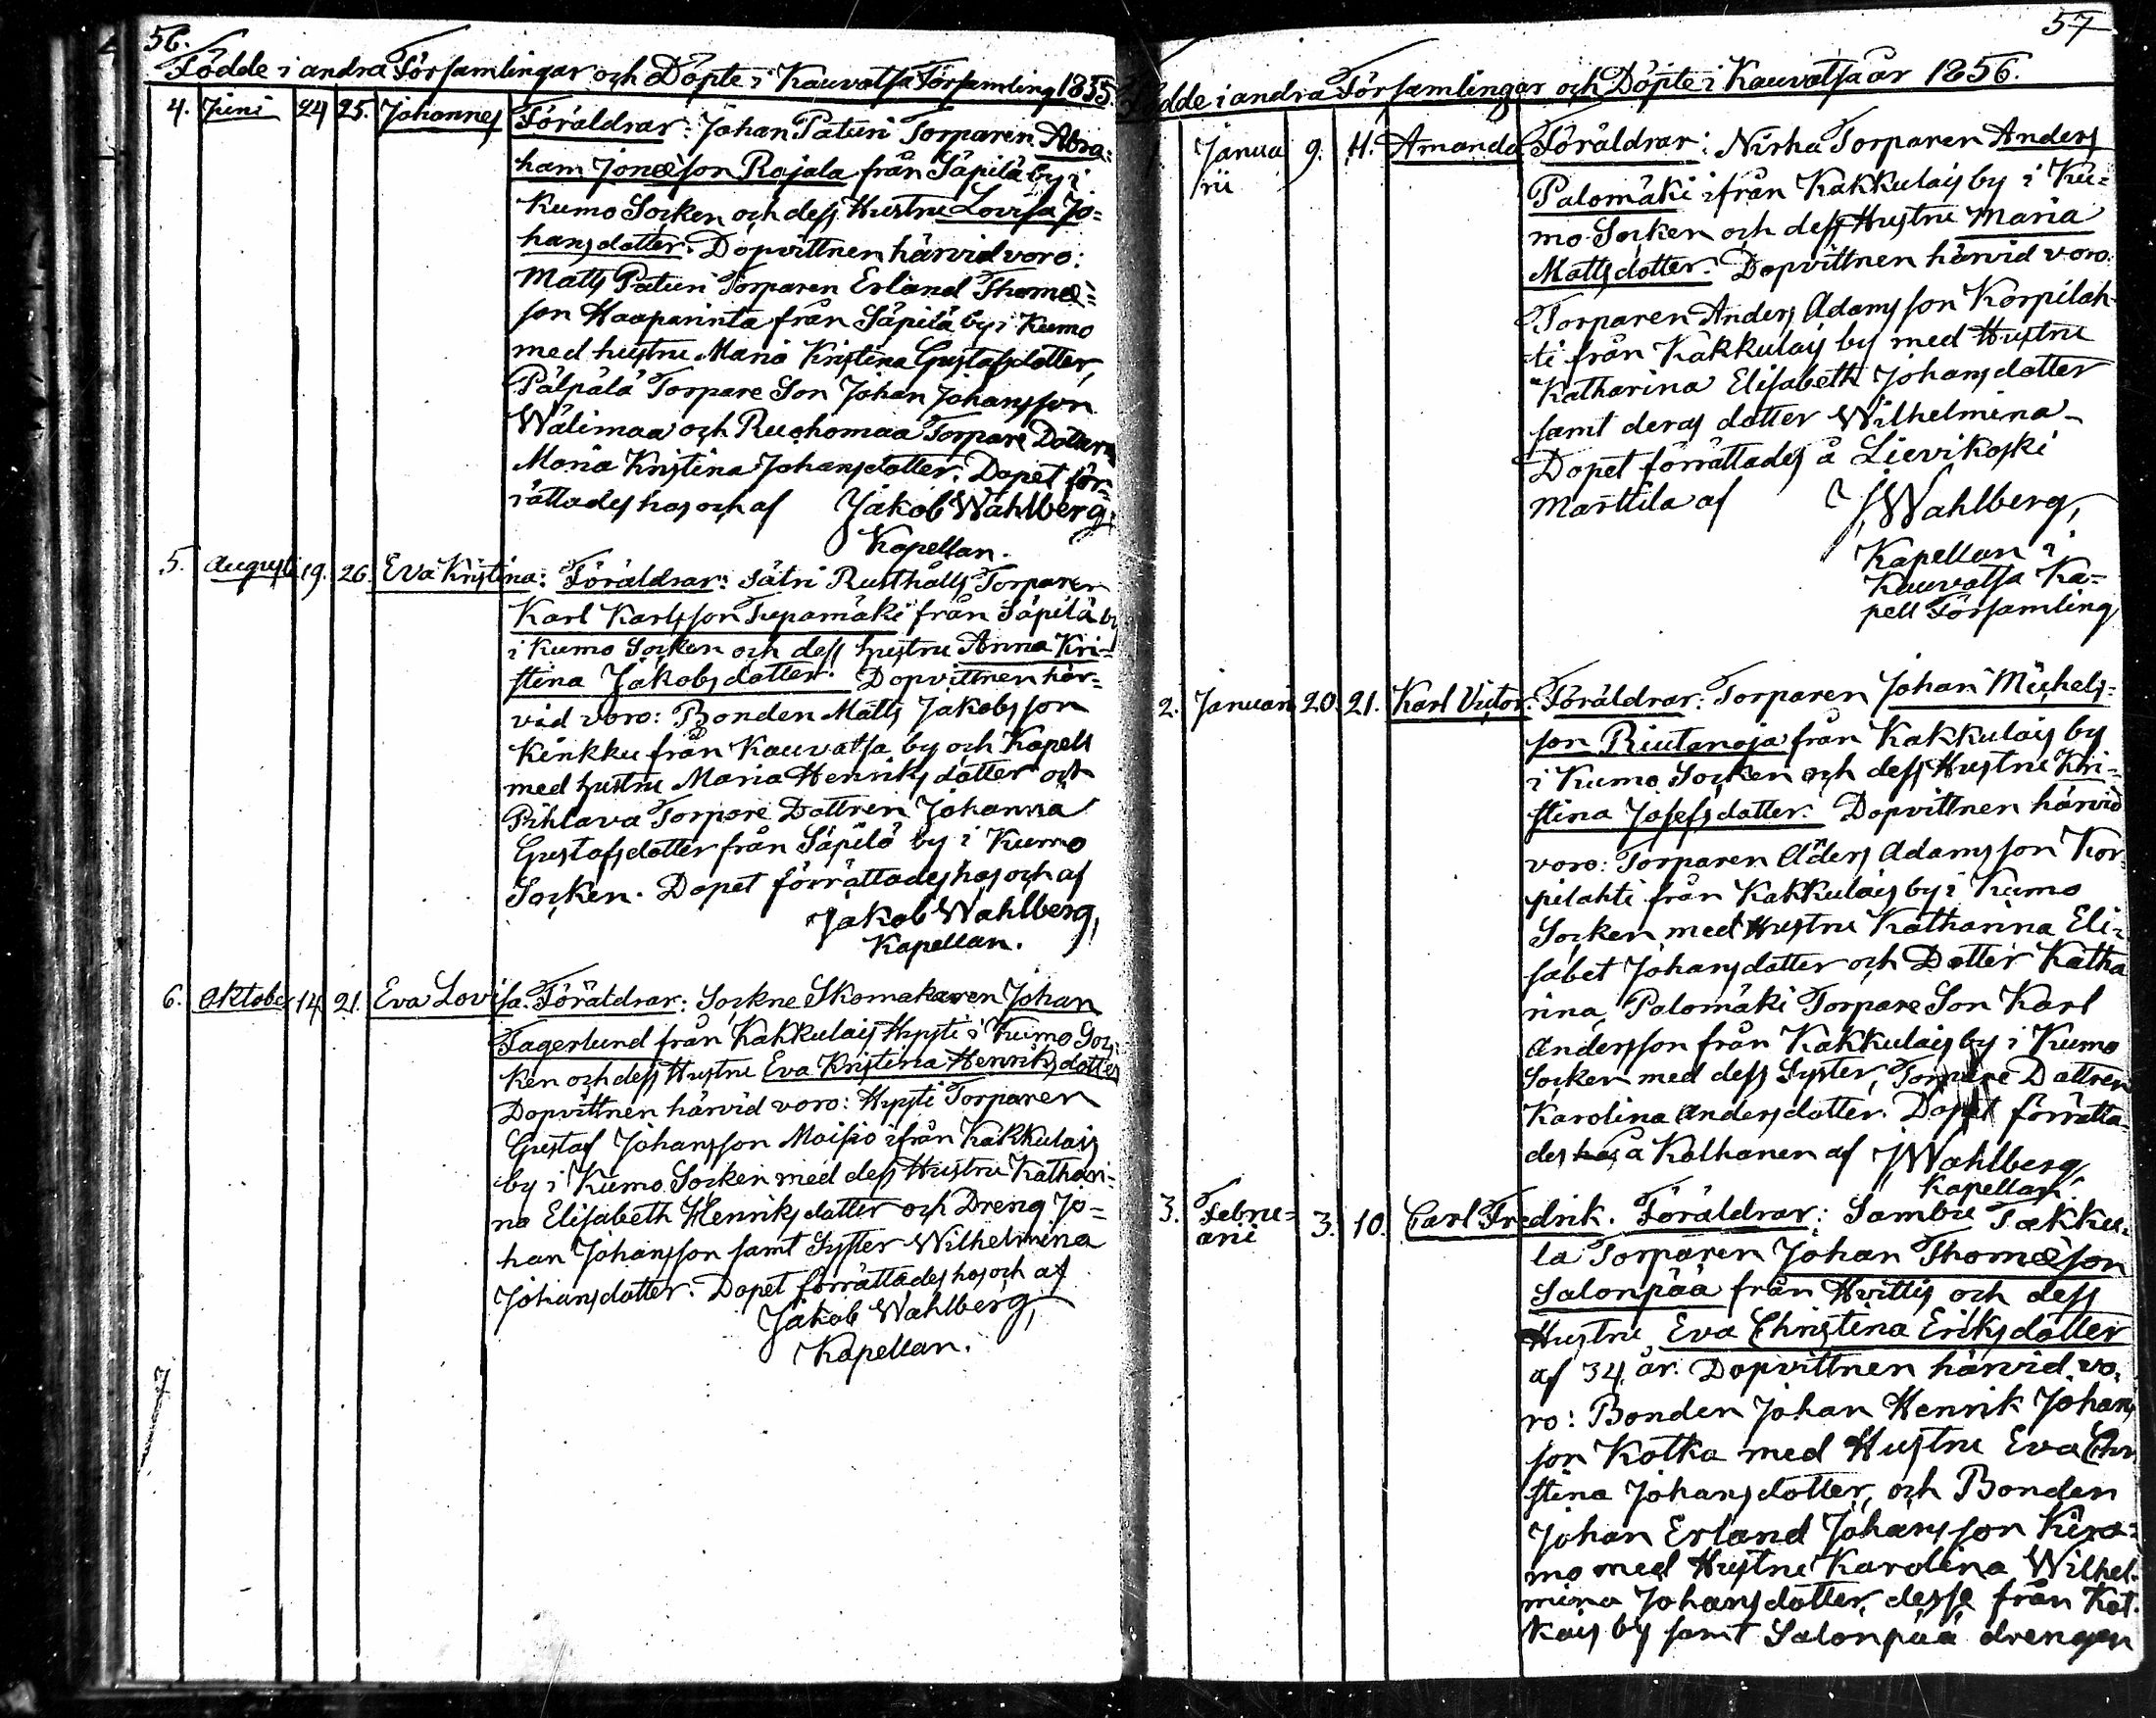 56.
Födde i andra Församlingar och Döpte i Kauvatsa Församling 1855.
4. Juni 24 25. Johannes Föräldrar: Johan Paturi Torparen Abra=
ham Jonæson Rajala från Säpilä by i
Kumo Socken och dess Hustru Lovisa Jo=
hansdotter. Dopvittnen härvid voro:
Matts Paturi Torparen Erland Thomæ=
son Haaparinta från Säpilä by i Kumo
med hustru Maria Kristina Gustafsdotter,
Pälpälä Torpare Son Johan Johansson
Wälimaa och Ruohomaa Torpare Dottern
Maria Kristina Johansdotter. Dopet för=
rättades hos och af Jakob Wahlberg,
Kapellan.
5. Augusti 19. 26. Eva Kristina: Föräldrar: Sätri Rusthålls Torparen
Karl Karlsson Tupamäki från Säpilä by
i Kumo Socken och dess hustru Anna Kri=
stina Jakobsdotter. Dopvittnen här=
vid voro: Bonden Matts Jakobsson
Kinkku från Kauvatsa by och Kapell
med hustru Maria Henriksdotter och
Pihlava Torpare Dottren Johanna
Gustafsdotter från Säpilä by i Kumo
Socken. Dopet förrättades hos och af
Jakob Wahlberg,
Kapellan.
6. Oktober 14. 21. Eva Lovisa. Föräldrar: Sockne Skomakaren Johan
Fagerlund från Kakkulais Hysti i Kumo Soc=
ken och dess Hustru Eva Kristina Henriksdotter
Dopvittnen härvid voro: Hysti Torparen
Gustaf Johansson Moisio ifrån Kakkulais
by i Kumo Socken med dess Hustru Kathari=
na Elisabeth Henriksdotter och Dreng Jo=
han Johansson samt Syster Wilhelmina
Johansdotter. Dopet förrättades hos och af
Jakob Wahlberg,
Kapellan.
57
Födde i andra Församlingar och Döpte i Kauvatsa år 1856.
Janua 9. 11. Amanda Föräldrar: Nirha Torparen Anders
rii Palomäki ifrån Kakkulais by i Ku=
mo Socken och dess Hustru Maria
Mattsdotter. Dopvittnen härvid voro
Torparen Anders Adamsson Korpilah=
ti från Kakkulais by med Hustru
Katharina Elisabeth Johansdotter
samt deras dotter Wilhelmina
Dopet förrättades å Lievikoski
Marttila af J. Wahlberg,
Kapellan i
Kauvatsa Ka=
pell Församling
2. Januari 20. 21. Karl Victor. Föräldrar: Torparen Johan Michels=
son Riutanoja från Kakkulais by
i Kumo Socken och dess Hustru Kri=
stina Josefsdotter. Dopvittnen härvid
voro: Torparen Aders Adamsson Kor
pilahti från Kakkulais by i Kumo
Socken med Hustru Katharina Eli=
sabet Johansdotter och Dotter Katha
rina, Palomäki Torpare Son Karl
Andersson från Kakkulais by i Kumo
Socken med dess Syster, Torpare Dottren
Karolina Andersdotter. Dopet förrätta=
des hos å Kalhanen af J Wahlberg,
Kapellan.
3. Febru= 3. 10. Carl Fredrik. Föräldrar: Sambu Takku=
ari la Torparen Johan Thomæson
Salonpää från Hvittis och dess
Hustru Eva Christina Eriksdotter
af 34 år. Dopvittnen härvid vo=
ro: Bonden Johan Henrik Johans
son Kotka med Hustru Eva Chri
stina Johansdotter, och Bonden
Johan Erland Johansson
mo med Hustru Karolina Wilhel=
mina Johansdotter, desse från Kot
kais by samt Salonpää drengen